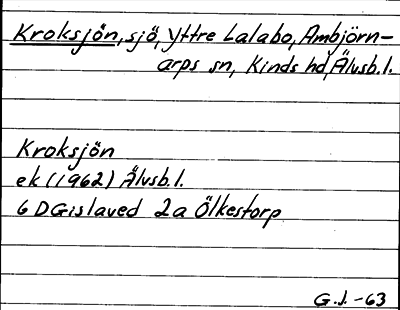 Kroksjön, sjö, Yttre Lalabo, Ambjörn-
arps sn, Kinds hd, Älvsb.l.
Kroksjön
ek (1962) Älvsb.l.
6 D Gislaved 2a Ölkestorp
G.J. -63